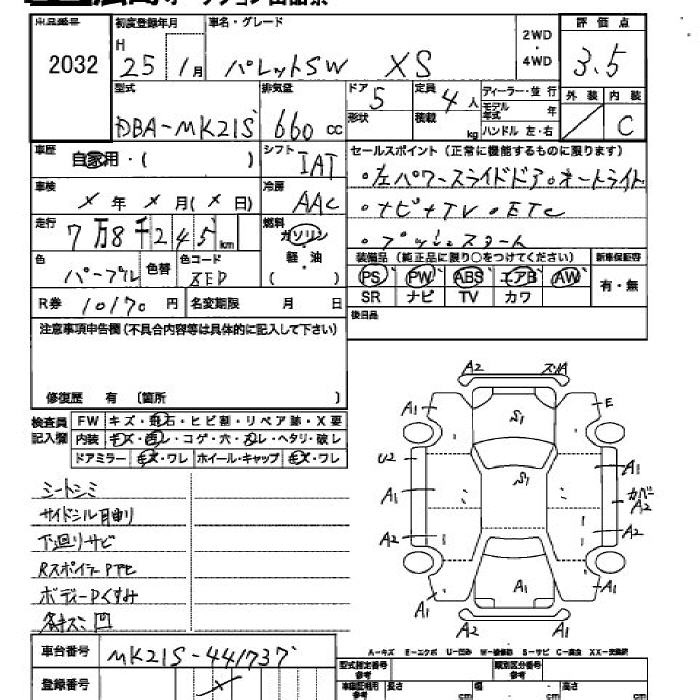 出品番号 2032
初度登録年月 H 25年 1月
車名・グレード パレットSW XS
2WD・4WD
評価点 3.5
外装 / 内装 C
型式 DBA-MK21S
排気量 660 cc
ドア 5 形状
定員 4人 積載 kg
ディーラー・並行
モデル年式 年
ハンドル 左・右
車歴 自家用・( )
シフト IAT
セールスポイント(正常に機能するものに限ります)
・左パワースライドドア・オートライト
・ナビ+TV・ETC
・プッシュスタート
車検 X年 X月(X日)
冷房 AAC
走行 7万8千245km
燃料 ガソリン 軽・油 ( )
色 パープル 色替
色コード ZED
装備品(純正品に限り○をつけてください) 新車保証書
PS PW ABS エアB AW 有・無
SR ナビ TV カワ
R券 10170円 名変期限 月 日
後日品
注意事項申告欄(不具合内容等は具体的に記入して下さい)
修復歴 有 〔箇所 〕
検査員記入欄
FW キズ・飛石・ヒビ割・リペア跡・X要
内装 キズ・・コゲ・穴・・ヘタリ・破レ
ドアミラー キズ・ワレ ホイール・キャップ キズ・ワレ
シートシミ
サイドシル曲り
下廻りサビ
RスポイラーPデキ
ボディーPくすみ
各キズ凹
A2 スリA
A1 S1 E
U2 S1 A1
A1 カバーA2
A2 A2
A1 A1 A1
A2 A1
A-キズ E-エクボ U-凹み W-補修跡 S-サビ C-腐食 XX-交換済
車台番号 MK21S-441737
登録番号 X
型式指定番号 参考 類別区分番号 参考
車庫証明用 参考 長さ cm 幅 cm 高さ cm